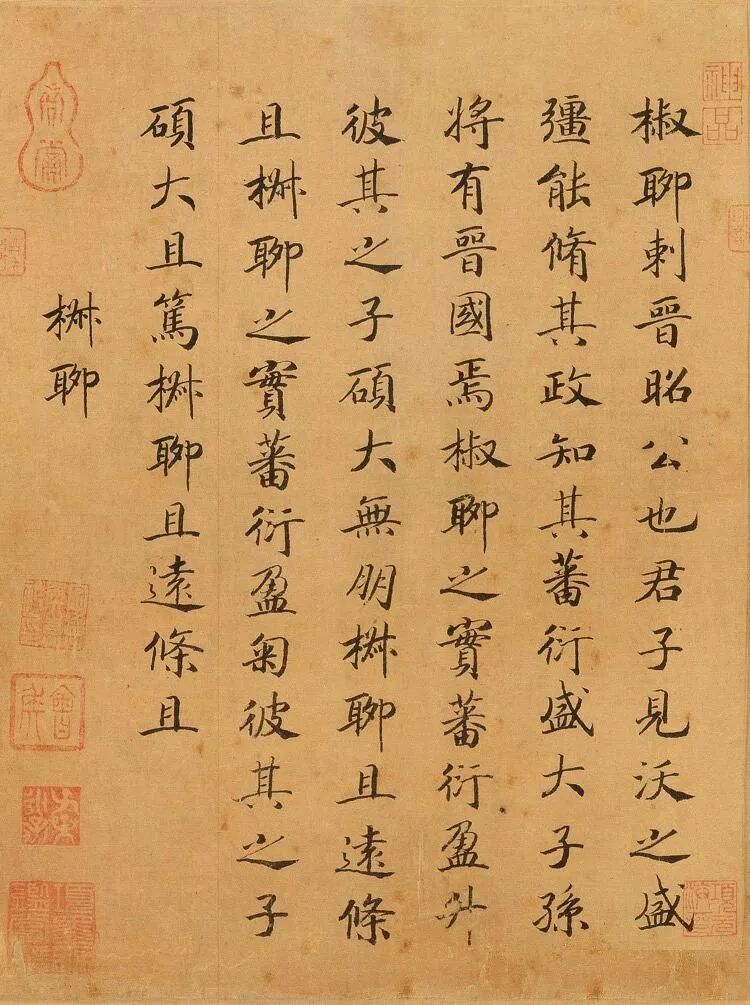 神品
椒聊刺晉昭公也君子見沃之盛
彊能脩其政知其蕃衍盛大子孫
將有晉國焉椒聊之實蕃衍盈升
彼其之子碩大無朋椒聊且遠條
且椒聊之實蕃衍盈匊彼其之子
碩大且篤椒聊且遠條且
椒聊